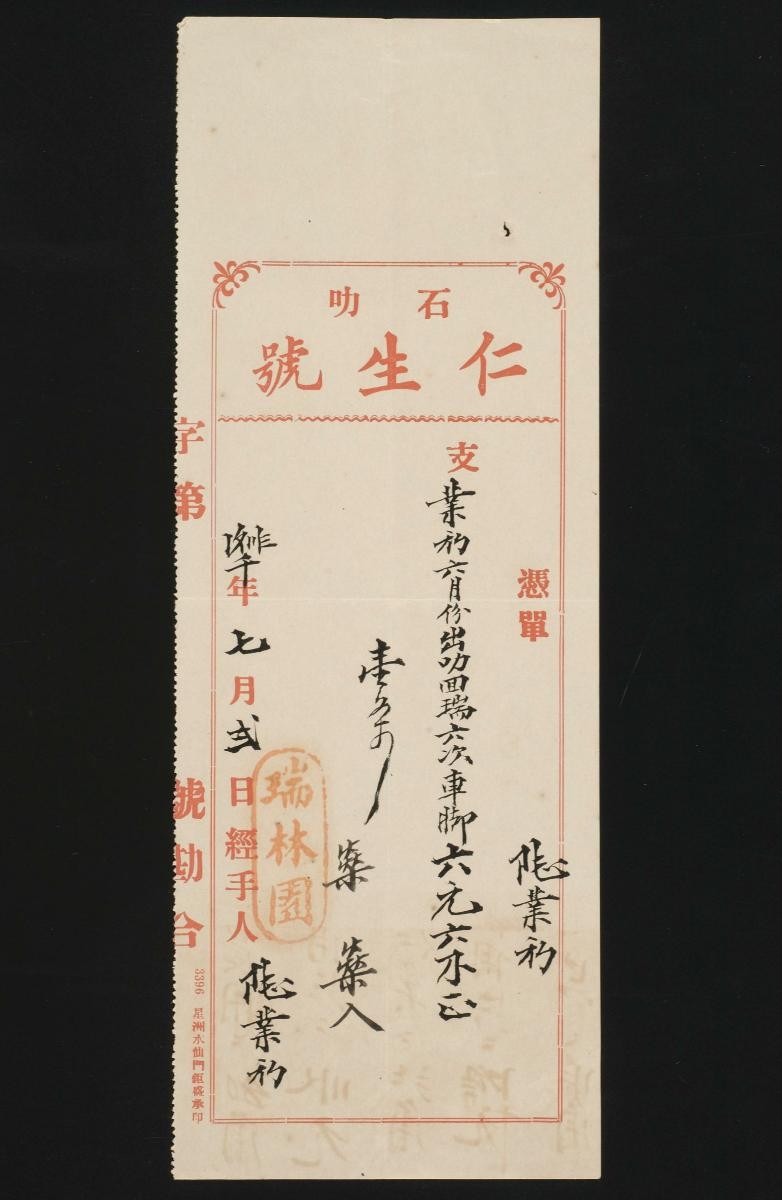 石叻
仁生號
憑單
陸業初
支業初六月份出叻回瑞六次車脚六元六
藥
藥入
年七月弍日經手人陸業初
瑞林園
字第
號勘合
3396 星洲水仙門鉅盛承印